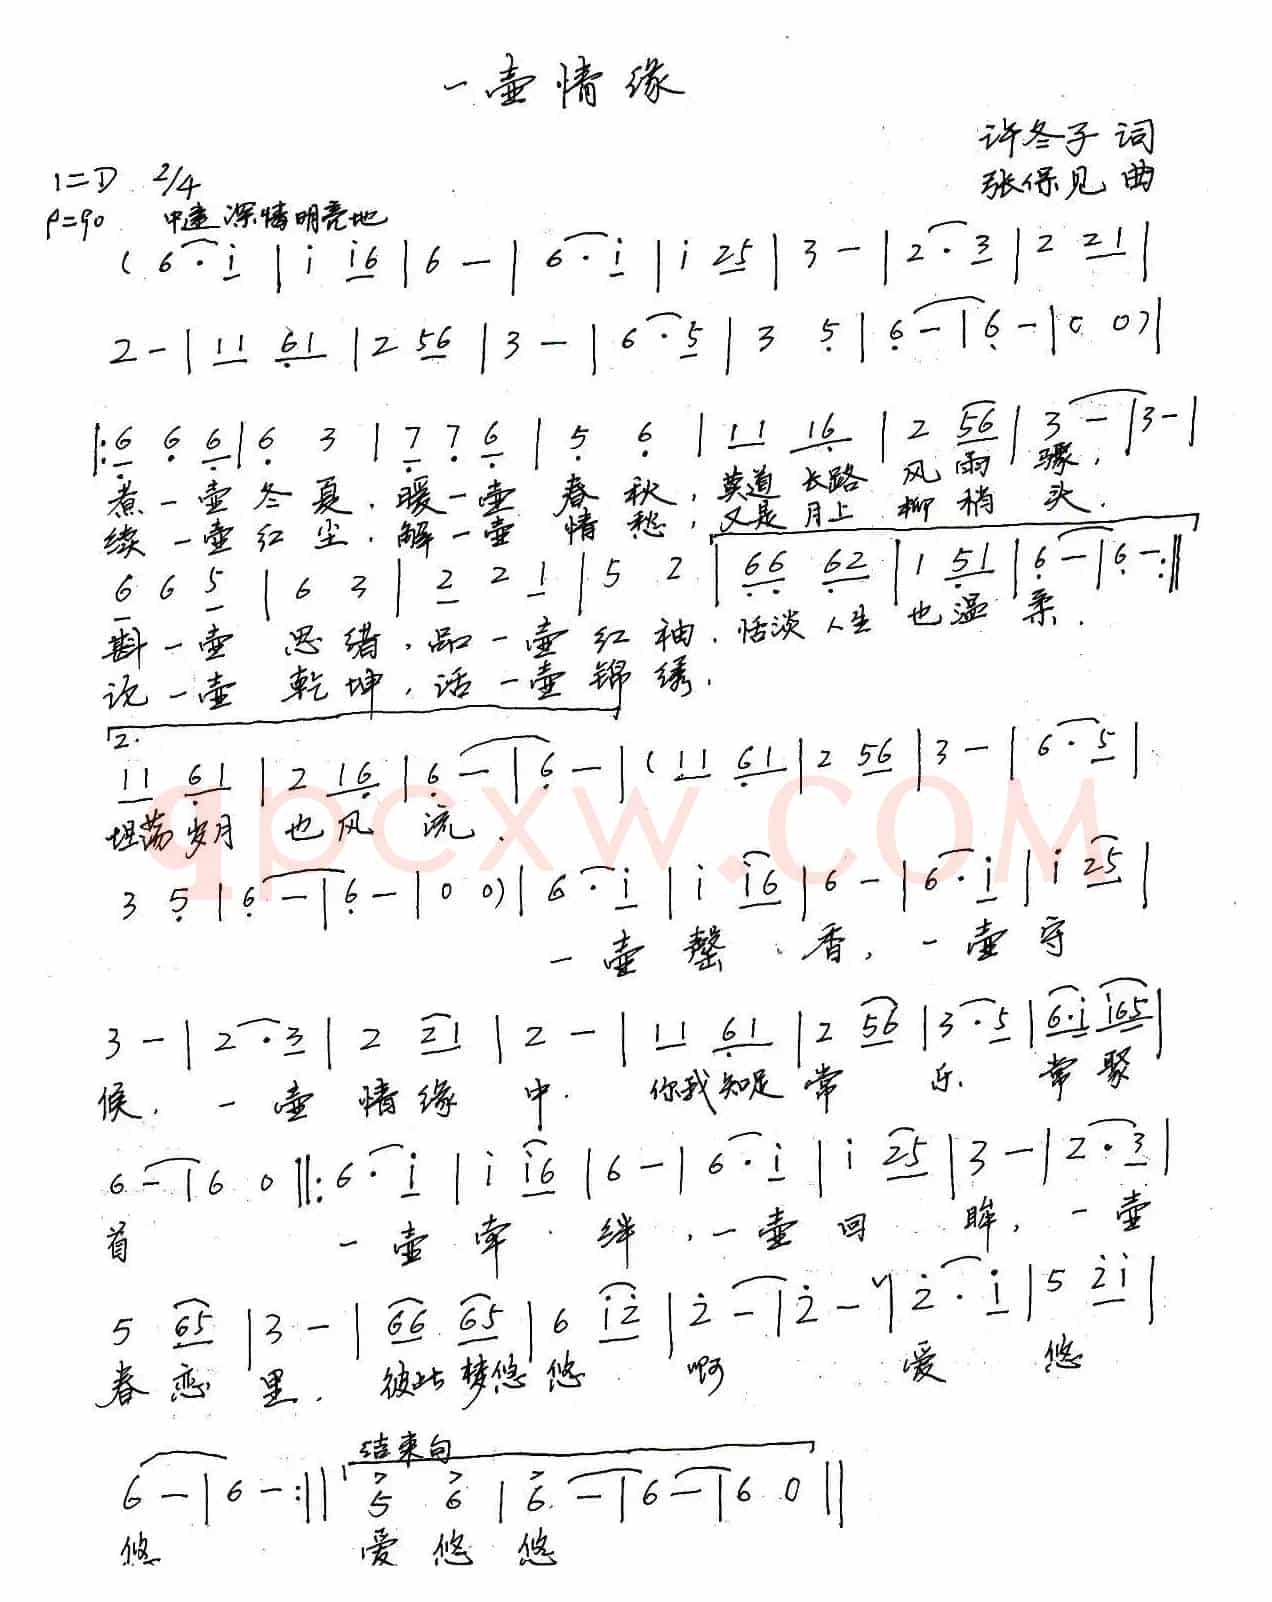 一壶情缘
许冬子 词
1=D 2/4
张保见 曲
♩=90 中速 深情明亮地
( 6 · i | i i6 | 6 — | 6 · i | i 25 | 3 — | 2 · 3 | 2 21 |
2 — | 11 61 | 2 56 | 3 — | 6 · 5 | 3 5 | 6 — | 6 — | 0 0 ) |
|: 6 6 6 | 6 3 | 7 7 6 | 5 6 | 11 16 | 2 56 | 3 — | 3 — |
煮一壶冬夏,暖一壶春秋,莫道长路风雨骤,
续一壶红尘,解一壶情愁,又是月上柳梢头.
6 6 5 | 6 3 | 2 2 1 | 5 2 | 66 62 | 1 51 | 6 — | 6 — :||
斟一壶思绪,品一壶红袖.恬淡人生也温柔.
论一壶乾坤,话一壶锦绣.
2.
11 61 | 2 16 | 6 — | 6 — | ( 11 61 | 2 56 | 3 — | 6 · 5 |
坦荡岁月也风流.
qpcxw.COM
3 5 | 6 — | 6 — | 0 0 ) | 6 · i | i i6 | 6 — | 6 · i | i 25 |
一壶馨香,一壶守
3 — | 2 · 3 | 2 21 | 2 — | 11 61 | 2 56 | 3 · 5 | 6·i i65 |
候,一壶情缘中.你我知足常乐 常聚
6 — | 6 0 ||: 6 · i | i i6 | 6 — | 6 · i | i 25 | 3 — | 2 · 3 |
首 一壶牵绊,一壶回眸,一壶
5 65 | 3 — | 66 65 | 6 i2 | 2 — | 2 — V | 2 · i | 5 2i |
春恋里.彼此梦悠悠 啊 爱悠
结束句
6 — | 6 — :|| 5 6 | 6 — | 6 — | 6 0 ||
悠 爱悠悠